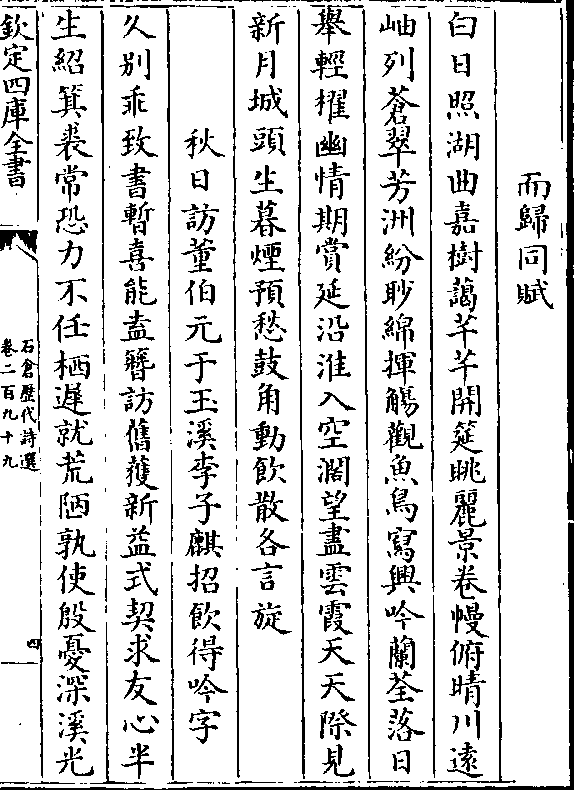 而歸同賦
白日照湖曲嘉樹藹芊芊開筵眺麗景卷幔俯晴川遠
岫列蒼翠芳洲紛眇綿揮觴觀魚鳥寫興吟蘭荃落日
舉輕櫂幽情期賞延沿淮入空濶望盡雲霞天天際見
新月城頭生暮煙預愁鼓角動飲散各言旋
秋日訪董伯元于玉溪李子麒招飲得吟字
久别乖致書暫喜能盍簪訪舊獲新益式契求友心半
生紹箕裘常恐力不任栖遲就荒陋孰使殷憂深溪光
欽定四庫全書
石倉歷代詩選
卷二百九十九
四